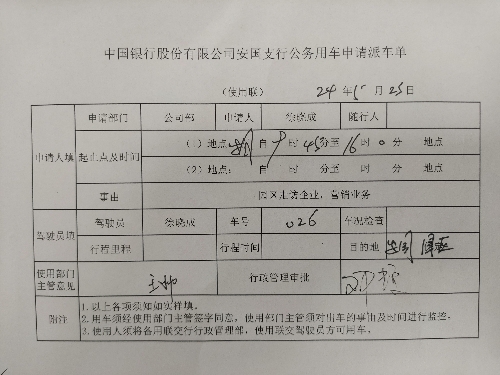 中国银行股份有限公司安国支行公务用车申请派车单
（使用联） 24 年 5 月 25 日
申请人填 申请部门 公司部 申请人 徐晓成 随行人
起止点及时间 （1）地点： 自 9 时 45 分至 16 时 0 分 地点
（2）地点： 自 时 分至 时 分 地点
事由 园区走访企业，营销业务
驾驶员填 驾驶员 徐晓成 车号 026 车况检查
行程里程 行程时间 目的地 安国
使用部门主管意见 行政管理审批
附注 1.以上各项须如实样填。
2.用车须经使用部门主管签字同意，使用部门主管须对出车的事由及时间进行监控。
3.使用人须将备用联交行行政管理部，使用联交驾驶员方可用车。